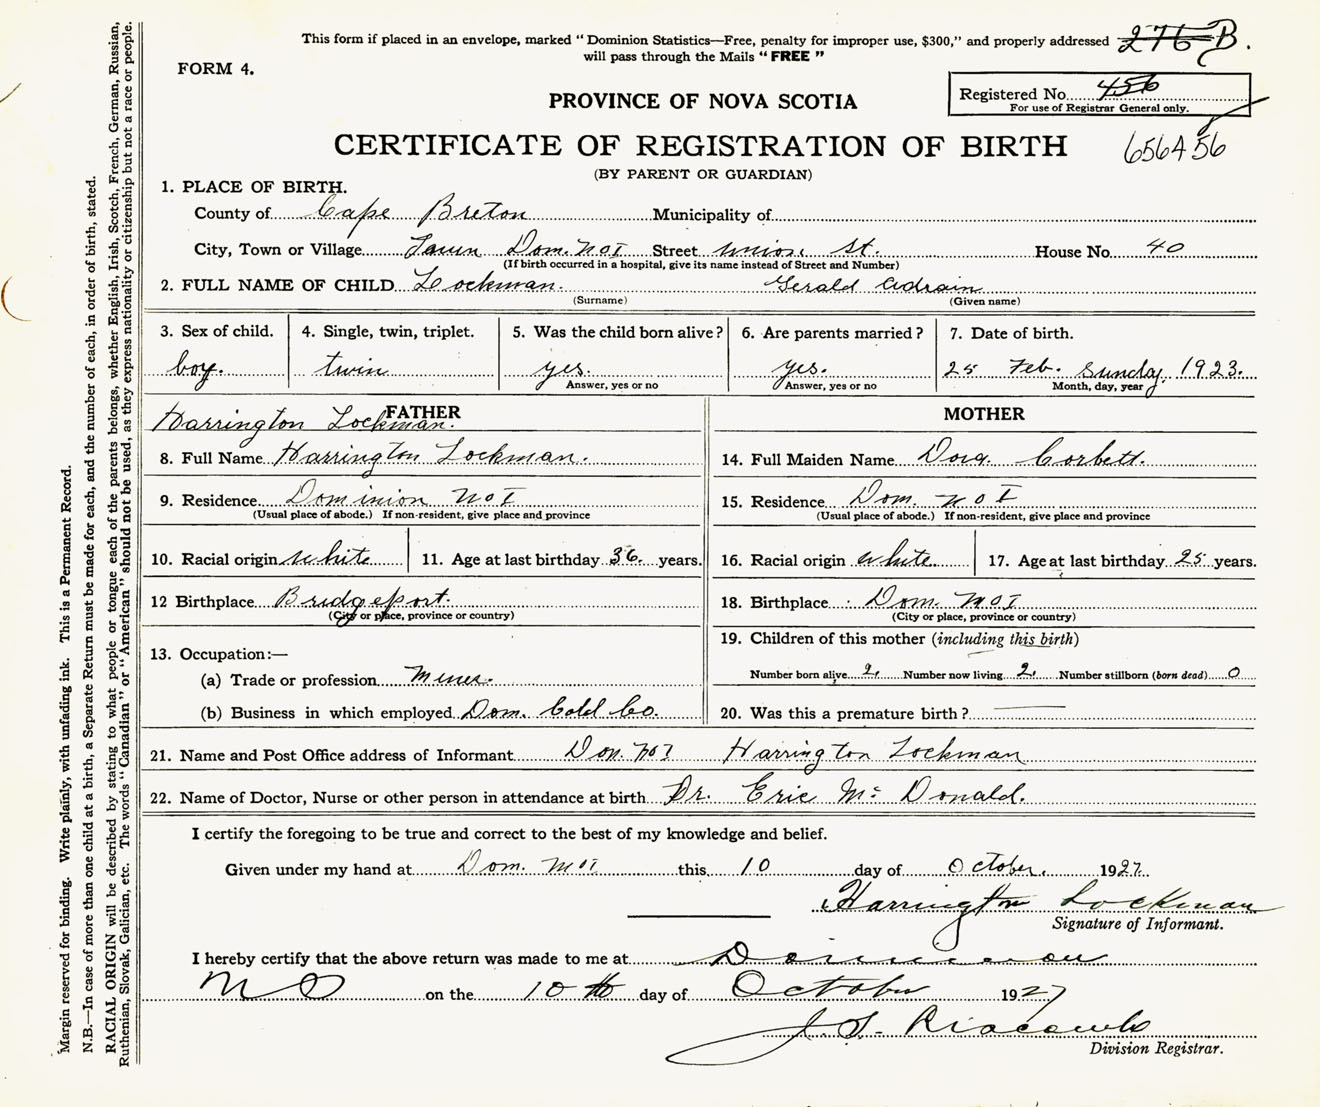 This form if placed in an envelope, marked "Dominion Statistics—Free, penalty for improper use, $300," and properly addressed
will pass through the Mails "FREE"
276 B.
FORM 4.
Registered No. 456
For use of Registrar General only.
PROVINCE OF NOVA SCOTIA
CERTIFICATE OF REGISTRATION OF BIRTH
656456
(BY PARENT OR GUARDIAN)
1. PLACE OF BIRTH.
County of Cape Breton Municipality of
City, Town or Village Town Dom. No 1 Street Union St. House No. 40
(If birth occurred in a hospital, give its name instead of Street and Number)
2. FULL NAME OF CHILD Lockman. Gerald Adrain
(Surname) (Given name)
3. Sex of child. 4. Single, twin, triplet. 5. Was the child born alive? 6. Are parents married? 7. Date of birth.
boy. twin yes. yes. 25 Feb. Sunday, 1923.
Answer, yes or no Answer, yes or no Month, day, year
FATHER MOTHER
Harrington Lockman.
8. Full Name Harrington Lockman. 14. Full Maiden Name Dora. Corbett.
9. Residence Dominion No I 15. Residence Dom. No I
(Usual place of abode.) If non-resident, give place and province (Usual place of abode.) If non-resident, give place and province
10. Racial origin white 11. Age at last birthday 36. years. 16. Racial origin white. 17. Age at last birthday 25 years.
12 Birthplace Bridgeport. 18. Birthplace Dom. No I
(City or place, province or country) (City or place, province or country)
19. Children of this mother (including this birth)
13. Occupation:—
(a) Trade or profession Miner. Number born alive 2. Number now living 2. Number stillborn (born dead) 0
(b) Business in which employed Dom. Cold Co. 20. Was this a premature birth? —
21. Name and Post Office address of Informant Dom. No 1 Harrington Lockman
22. Name of Doctor, Nurse or other person in attendance at birth Dr. Eric Mc Donald.
I certify the foregoing to be true and correct to the best of my knowledge and belief.
Given under my hand at Dom. No 1 this 10 day of October. 1927.
Harrington Lockman
Signature of Informant.
I hereby certify that the above return was made to me at Dominion
No on the 10 th day of October 1927
J. S.
Division Registrar.
Margin reserved for binding. Write plainly, with unfading ink. This is a Permanent Record.
N.B.—In case of more than one child at a birth, a Separate Return must be made for each, and the number of each, in order of birth, stated.
RACIAL ORIGIN will be described by stating to what people or tongue each of the parents belongs, whether English, Irish, Scotch, French, German, Russian,
Ruthenian, Slovak, Galician, etc. The words "Canadian" or "American" should not be used, as they express nationality or citizenship but not a race or people.